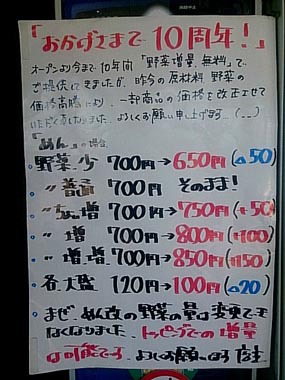 「おかげさまで10周年!」
オープンより今まで10年間「野菜増量、無料」で、
ご提供してきましたが、昨今の原材料、野菜の
価格高騰により、一部商品の価格を改正させて
いただく事になりました。よろしくお願い申し上げます…(…)
の場合
野菜少 700円→650円(△50)
〃 普通 700円 そのまま!
〃 ちょい増 700円→750円(+50)
〃 増 700円→800円(+100)
〃 増増 700円→850円(+150)
各、大盛 120円→100円(△20)
の野菜の量は変更でき
なくなりました、トッピングでの増量
は可能です。よろしくお願い